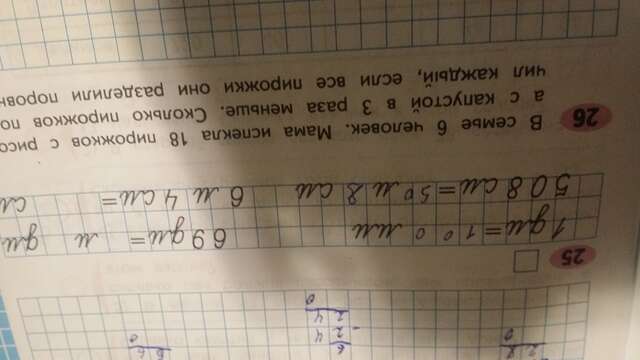 28
0
6
- 24
24
0
66
0
25
1 дм = 100 мм 69 дм = м дм
508 см = 50 м 8 см 6 м 4 см = см
26 В семье 6 человек. Мама испекла 18 пирожков с рисо
а с капустой в 3 раза меньше. Сколько пирожков по
чил каждый, если все пирожки они разделили поровн